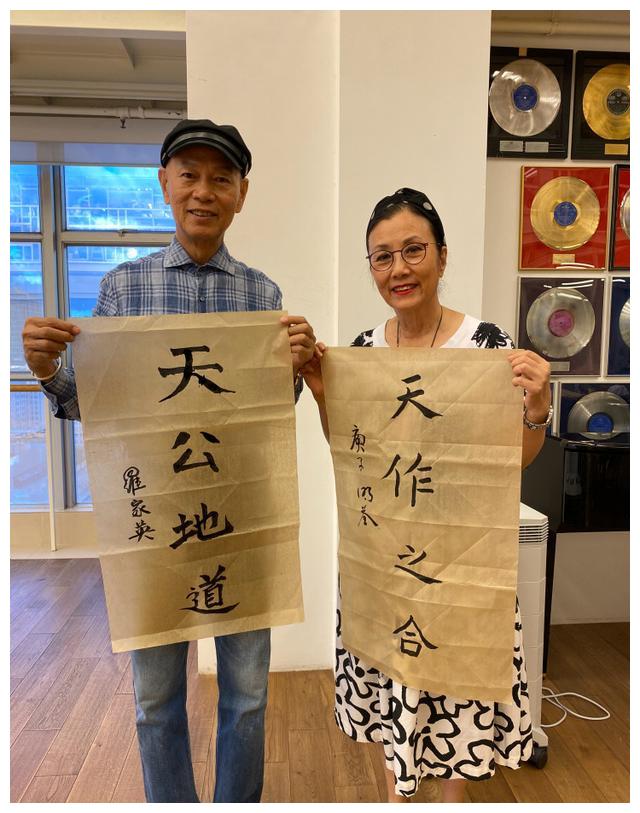 天公地道
羅家英
天作之合
庚子 明荃